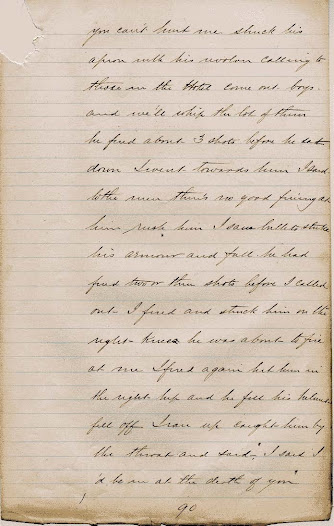 you can't hurt me struck his
apron with his revolver calling to
those in the Hotel come out boys
and we'll whip the lot of them
he fired about 3 shots before he sat
down I went towards him I said
to the men this is no good firing at
him rush him I saw bullets strike
his armour and fall he had
fired two or three shots before I called
out I fired and struck him on the
right knee he was about to fire
at me I fired again hit him in
the right hip and he fell his helmet
fell off I ran up caught him by
the throat and said, I said I
'd be in at the death of you"
90